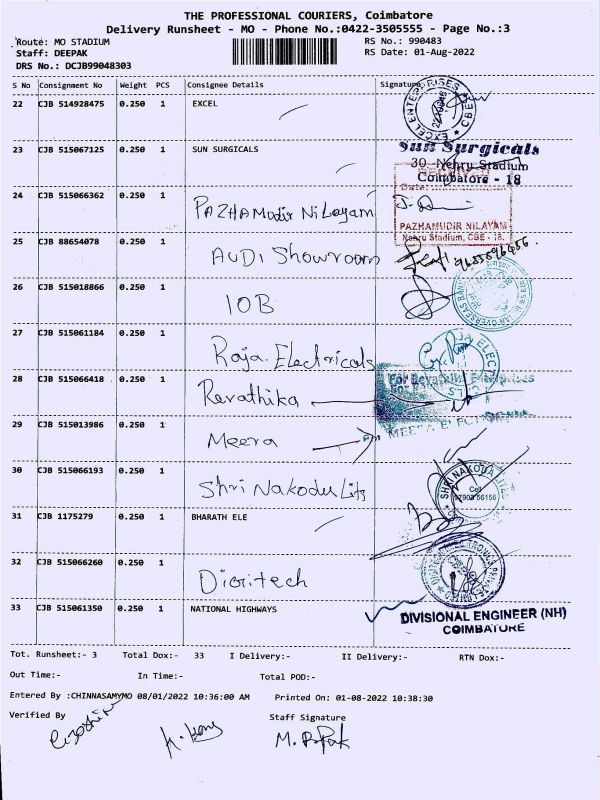 THE PROFESSIONAL COURIERS, Coimbatore
Delivery Runsheet - MO - Phone No.:0422-3505555 - Page No.:3
Route: MO STADIUM RS No.: 990483
Staff: DEEPAK RS Date: 01-Aug-2022
DRS No.: DCJB99048303
S No Consignment No Weight PCS Consignee Details Signature
22 CJB 514928475 0.250 1 EXCEL
EXCEL ENTERPRISES CBE
23 CJB 515067125 0.250 1 SUN SURGICALS
Sun Surgicals
30 Nehru Stadium
Coimbatore - 18
24 CJB 515066362 0.250 1 PAZHAMudir NiLayam
Date:
PAZHAMUDIR NILAYAM
Nehru Stadium, CBE - 18.
25 CJB 88654078 0.250 1 AUDI Showroom
26 CJB 515018866 0.250 1 IOB
27 CJB 515061184 0.250 1 Raja Electricals
28 CJB 515066418 0.250 1 Revathika
For Revathika Enterprises
29 CJB 515013986 0.250 1 Meera
30 CJB 515066193 0.250 1 Shri Nakodu Lits
SHRI NAKODA
Cell
31 CJB 1175279 0.250 1 BHARATH ELE
32 CJB 515066260 0.250 1 Digitech
33 CJB 515061350 0.250 1 NATIONAL HIGHWAYS
DIVISIONAL ENGINEER (NH)
COIMBATORE
Tot. Runsheet:- 3 Total Dox:- 33 I Delivery:- II Delivery:- RTN Dox:-
Out Time:- In Time:- Total POD:-
Entered By :CHINNASAMYMO 08/01/2022 10:36:00 AM Printed On: 01-08-2022 10:38:30
Verified By Staff Signature